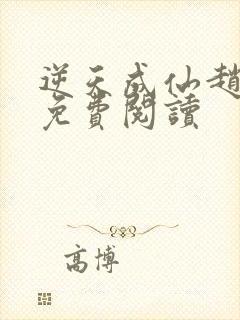 逆天成仙趙
免費閱讀
高博